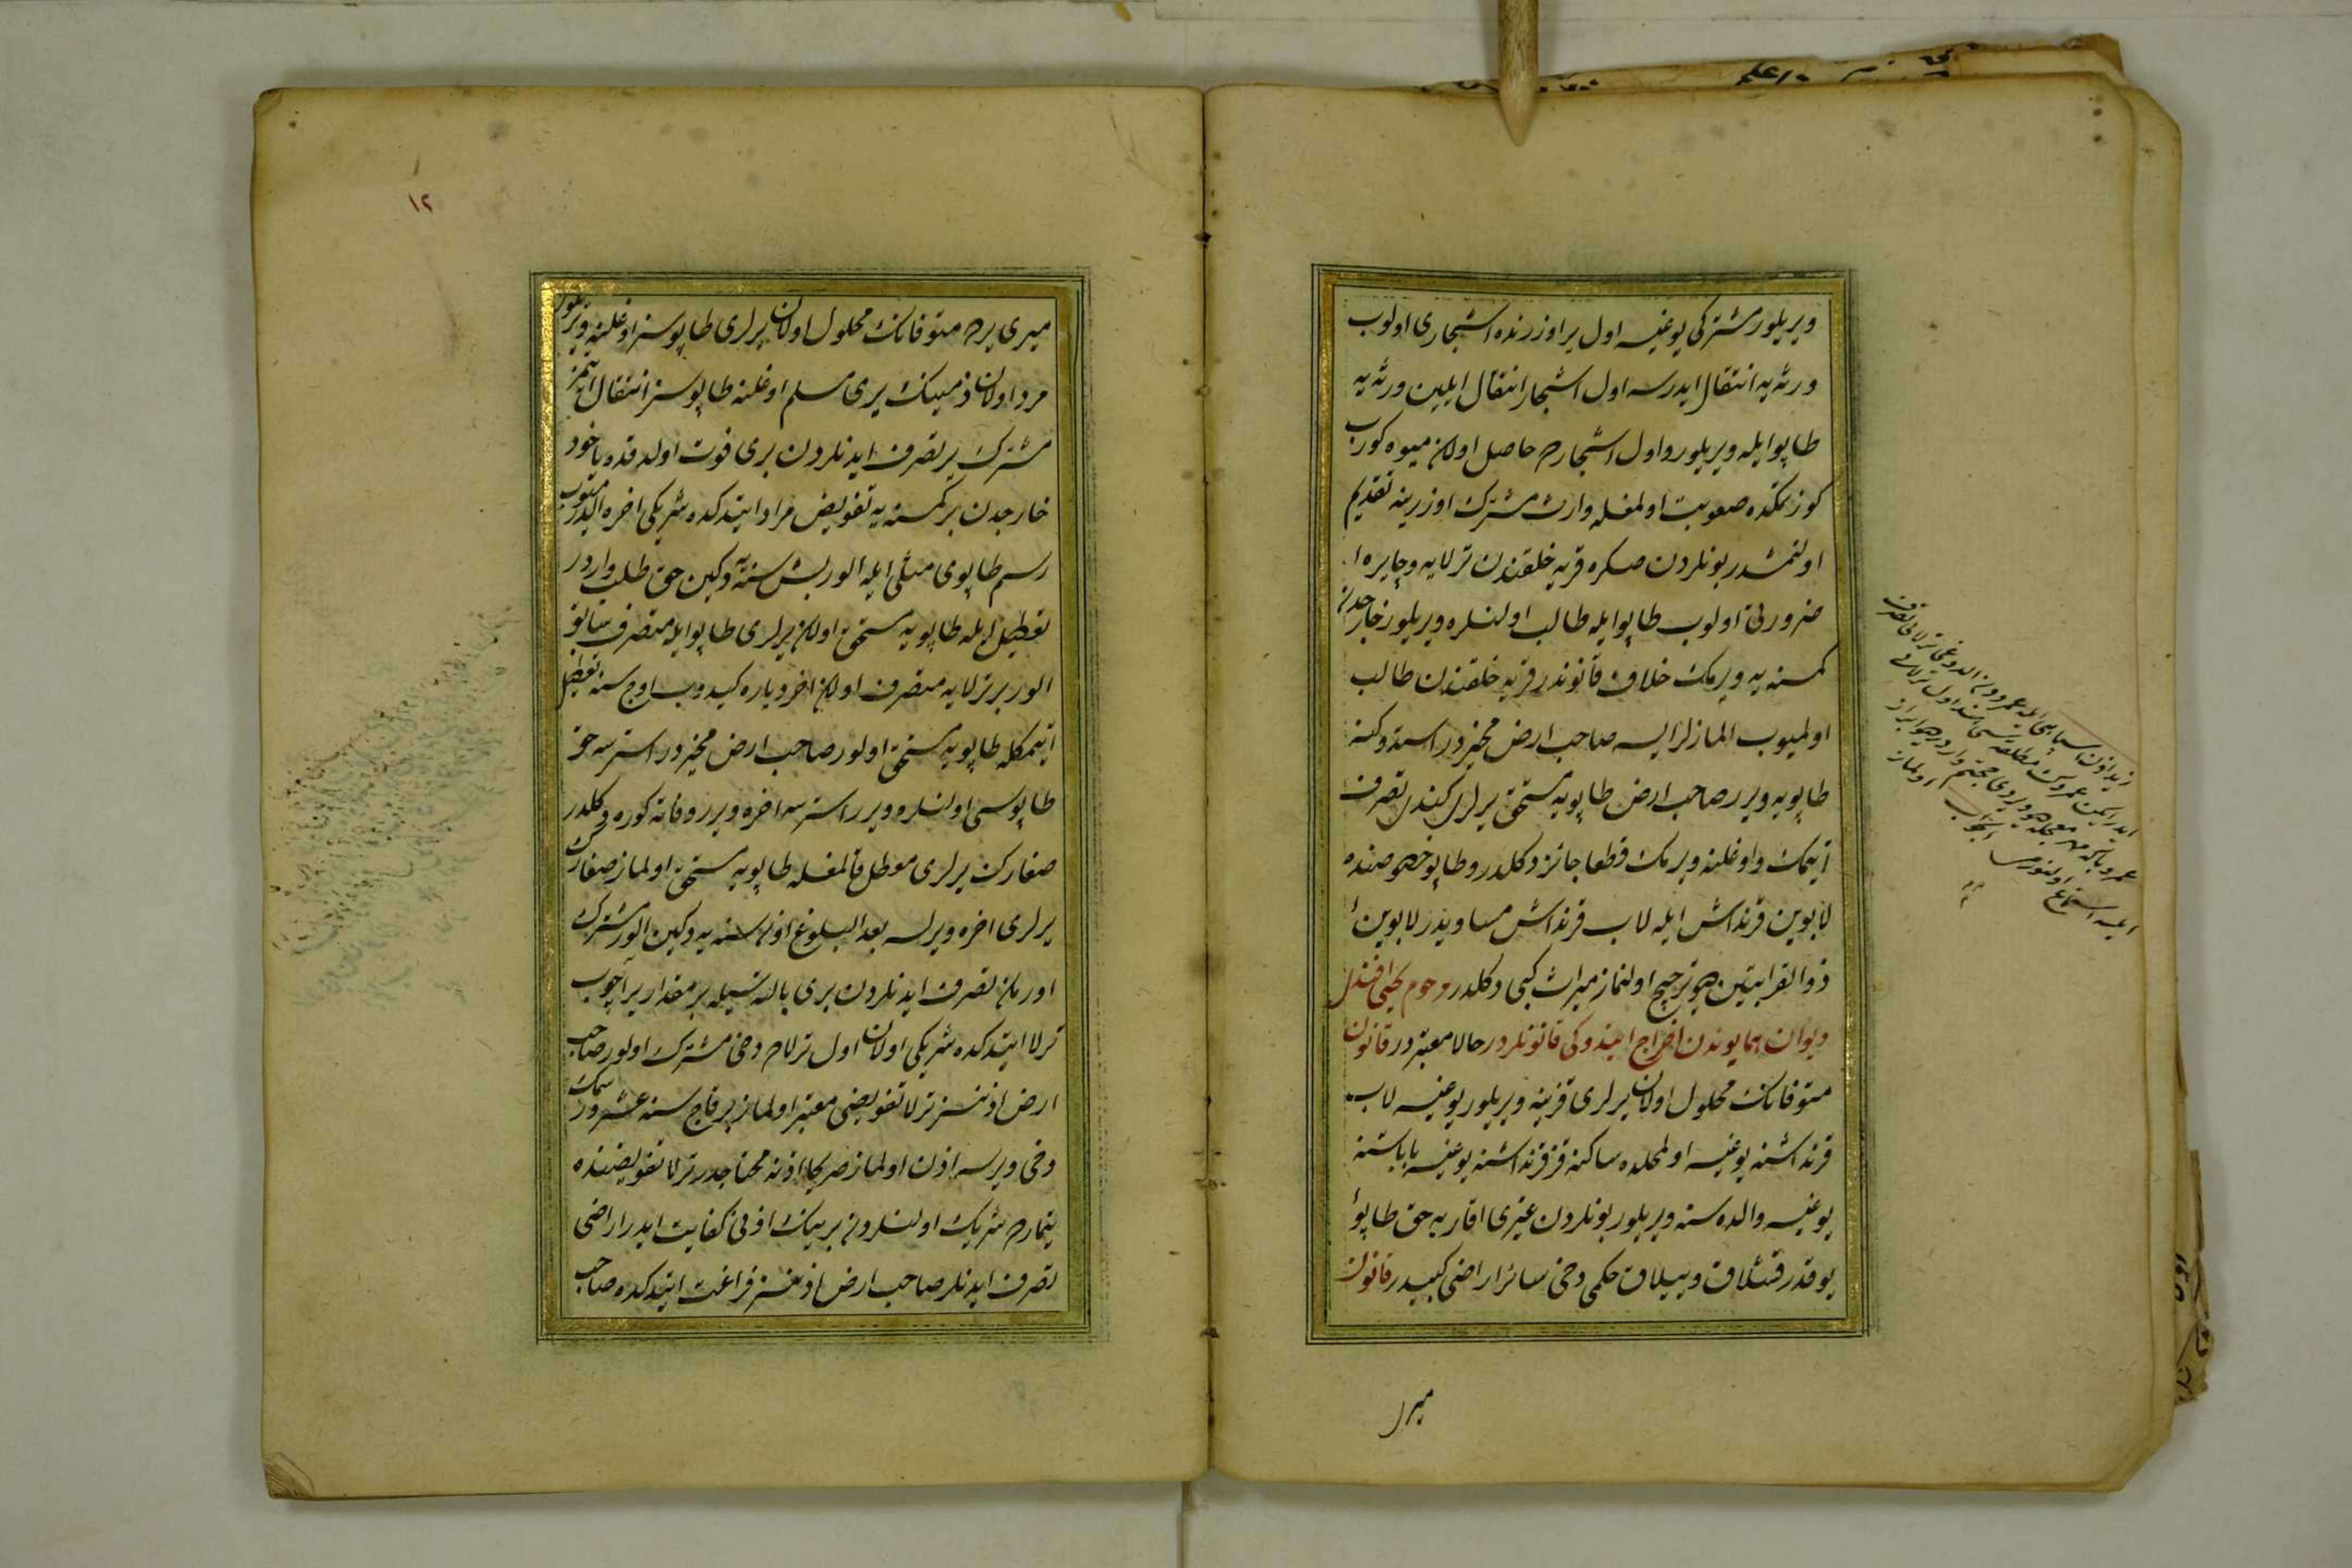 ویریلور مشترکی یوغیسه اول یر اوزرنده اشجاری اولوب
ورثه یه انتقال ایدرسه اول اشجار انتقال ایلین ورثه یه
طاپو ایله ویریلور و اول اشجارده حاصل اولان میوه کوروب
کوزتمکده صعوبت اولمغله وارث مشترک اوزرینه تقدیم
اولنمشدر بونلردن صکره قریه خلقندن ترلایه و چایره
ضرورتی اولوب طاپو ایله طالب اولنلره ویریلور خارجدن
کمسنه یه ویرمک خلاف قانوندر قریه خلقندن طالب
اولمیوب المازلر ایسه صاحب ارض مخیردر استدوکنه
طاپویه ویرر صاحب ارض طاپویه مستحق یرلری کندی تصرف
ایتمک و اوغلنه ویرمک قطعا جائز دکلدر و طاپو خصوصنده
لابوین قرنداش ایله لاب قرنداش مساویدر لابوین
ذو القرابتین هو ترجیح اولنماز میراث کبی دکلدر مرحوم یحیی افندی
دیوان همایوندن اخراج ایتدوکی قانونلردر حالا معتبردر قانون
متوفانک محلول اولان یرلری قزینه ویریلور یوغیسه لاب
قرنداشنه یوغیسه اول محلده ساکنه قز قرنداشنه یوغیسه باباسنه
یوغیسه والده سنه ویریلور بونلردن غیری اقاربه حق طاپو
یوقدر قشلاق و ییلاق حکمی دخی سائر اراضی کبیدر قانون
میری
زید اذن سپاهی ایله عمرودن الدوغی ترلایی تصرف
۱۲
میری یرده متوفانک محلول اولان یرلری طاپوسز اوغلنه ویریلور
مرد اولان ذمینک یری مسلم اوغلنه طاپوسز انتقال ایتمز
مشترک یر تصرف ایدنلردن بری فوت اولدقده یاخود
خارجدن بر کمسنه یه تفویض مراد ایتدکده شریکی اخره الدرمیوب
رسم طاپوی مثلی ایله الور بش سنه یه دکین حق طلب واردر
تعطیل ایله طاپویه مستحق اولان یرلری طاپو ایله متصرف سابق
الور بر ترلایه متصرف اولان اخر دیاره کیدوب اوچ سنه تعطیل
ایتمکله طاپویه مستحق اولور صاحب ارض مخیردر استرسه حق
طاپوسی اولنلره ویرر استرسه اخره ویرر وفاته کوره دکلدر
صغارک یرلری معطل قالمغله طاپویه مستحق اولماز صغارک
یرلری اخره ویرلسه بعد البلوغ اون سنه یه دکین الور مشترک
اورمان تصرف ایدنلردن بری بالته سیله بر مقدار یر آچوب
ترلا ایتدکده شریکی اولان اول ترلاده دخی مشترک اولور صاحب
ارض اذنسز ترلا تفویضی معتبر اولماز بر قاچ سنه عشر و رسمک
دخی ویرسه اذن اولماز صریحا اذنه محتاجدر ترلا تفویضنده
تیمارده شریک اولنلردن برینک اذنی کفایت ایدر اراضی
تصرف ایدنلر صاحب ارض اذنسز فراغت ایتدکده صاحب